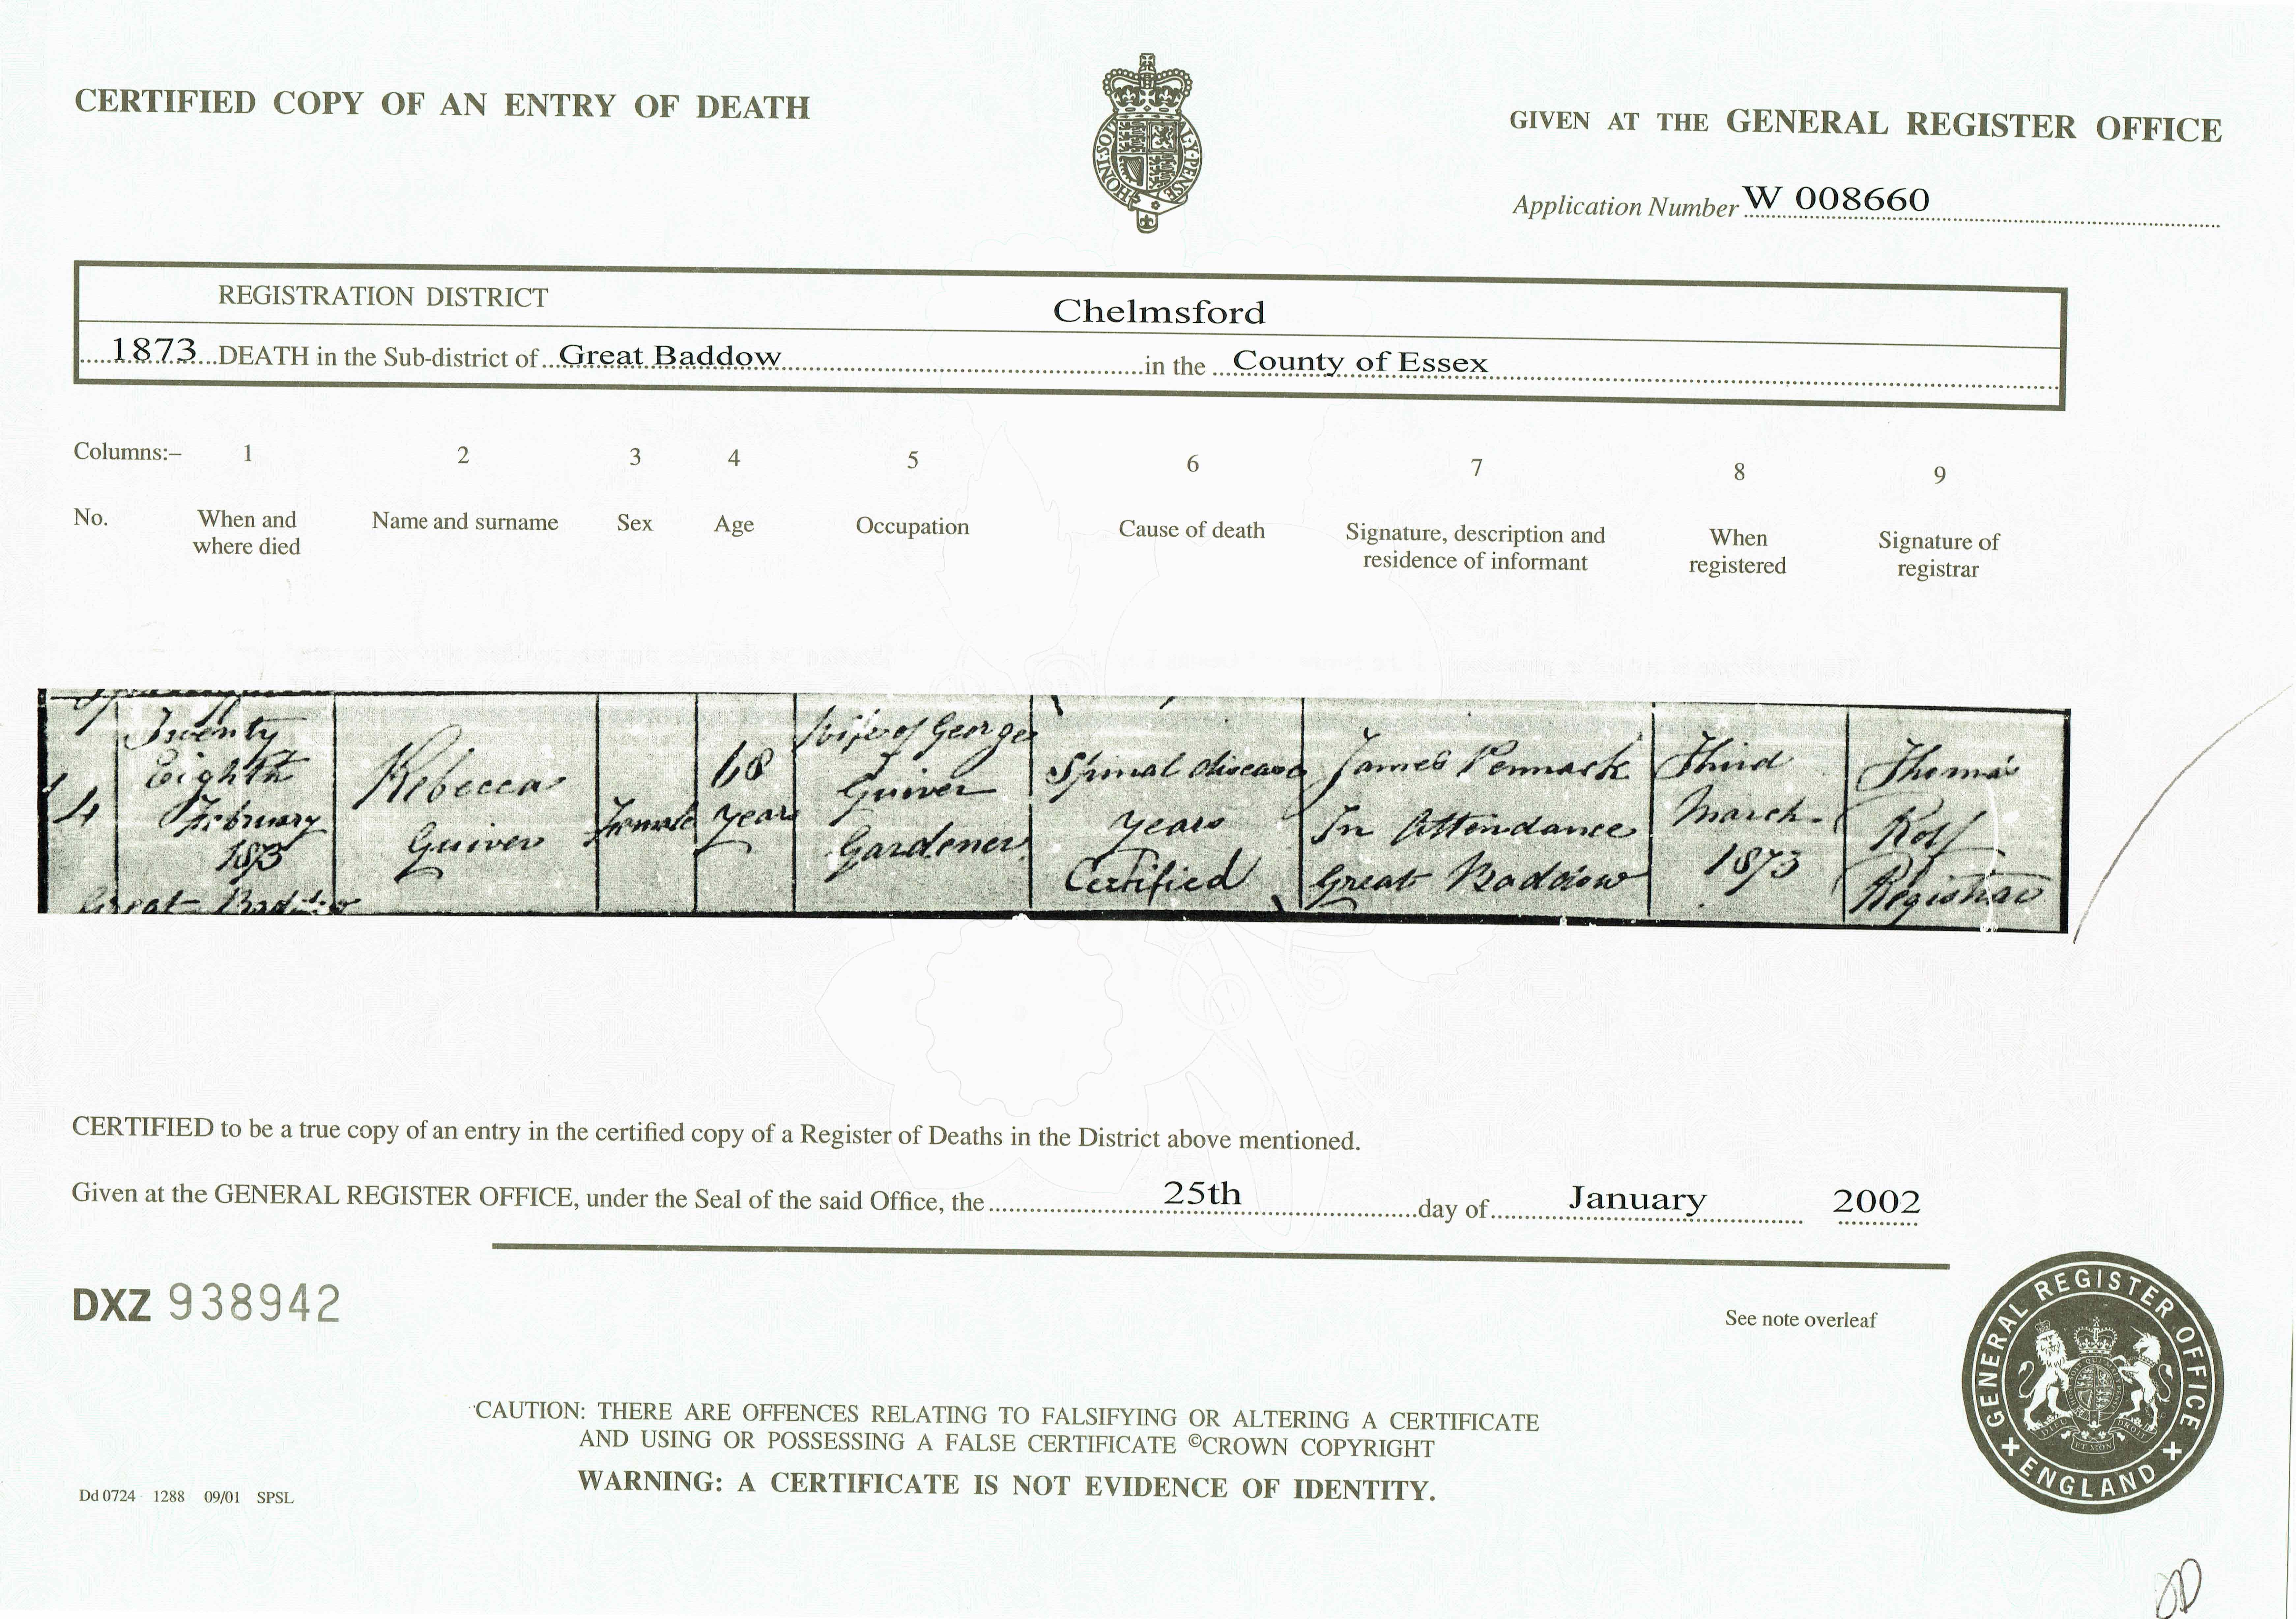 CERTIFIED COPY OF AN ENTRY OF DEATH
HONI·SOIT
AL·Y·PENSE
GIVEN AT THE GENERAL REGISTER OFFICE
Application Number W 008660
REGISTRATION DISTRICT Chelmsford
1873 DEATH in the Sub-district of Great Baddow in the County of Essex
Columns:– 1 2 3 4 5 6 7 8 9
No. When and where died Name and surname Sex Age Occupation Cause of death Signature, description and residence of informant When registered Signature of registrar
4
Twenty
Eighth
February
1873
Great Baddow
Rebecca
Guiver
Female
68
years
Wife of George
Guiver
Gardener
Spinal disease
years
Certified
James Pennack
In Attendance
Great Baddow
Third
March
1873
Thomas
Rolf
Registrar
CERTIFIED to be a true copy of an entry in the certified copy of a Register of Deaths in the District above mentioned.
Given at the GENERAL REGISTER OFFICE, under the Seal of the said Office, the 25th day of January 2002
DXZ 938942
See note overleaf
GENERAL REGISTER OFFICE
ENGLAND
DIEU ET MON DROIT
CAUTION: THERE ARE OFFENCES RELATING TO FALSIFYING OR ALTERING A CERTIFICATE
AND USING OR POSSESSING A FALSE CERTIFICATE ©CROWN COPYRIGHT
WARNING: A CERTIFICATE IS NOT EVIDENCE OF IDENTITY.
Dd 0724 1288 09/01 SPSL